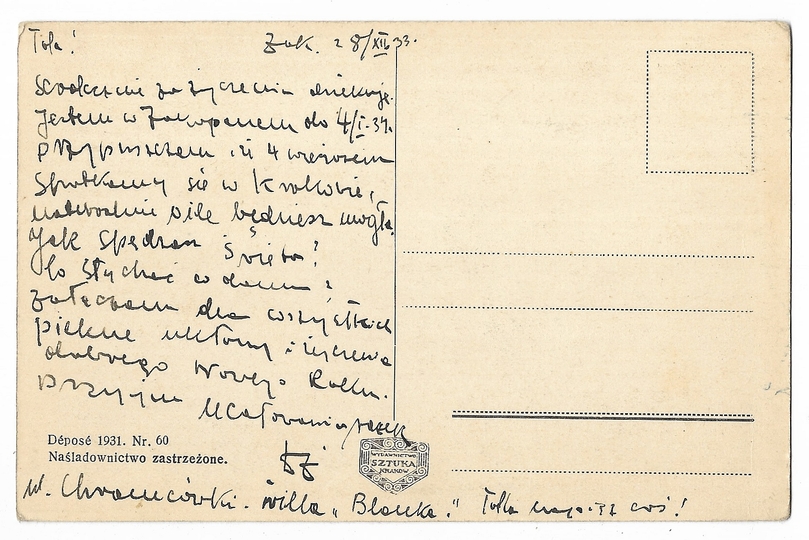 Tola!
Zak. 28/XII 33.
Serdecznie za życzenia dziękuję.
Jestem w Zakopanem do 4/I-34.
przypuszczam iż 4 wieczorem
Spotkamy się w Krakowie,
naturalnie o ile będziesz mogła.
Jak spędzasz Święta?
Co słychać w domu?
załączam dla wszystkich
piękne ukłony i życzenia
dobrego Nowego Roku.
przyjm ucałowania rączek
Déposé 1931. Nr. 60
Naśladownictwo zastrzeżone.
WYDAWNICTWO
SZTUKA
KRAKÓW
ul. Chramcówki. willa „Blanka." Tolla napisz coś!